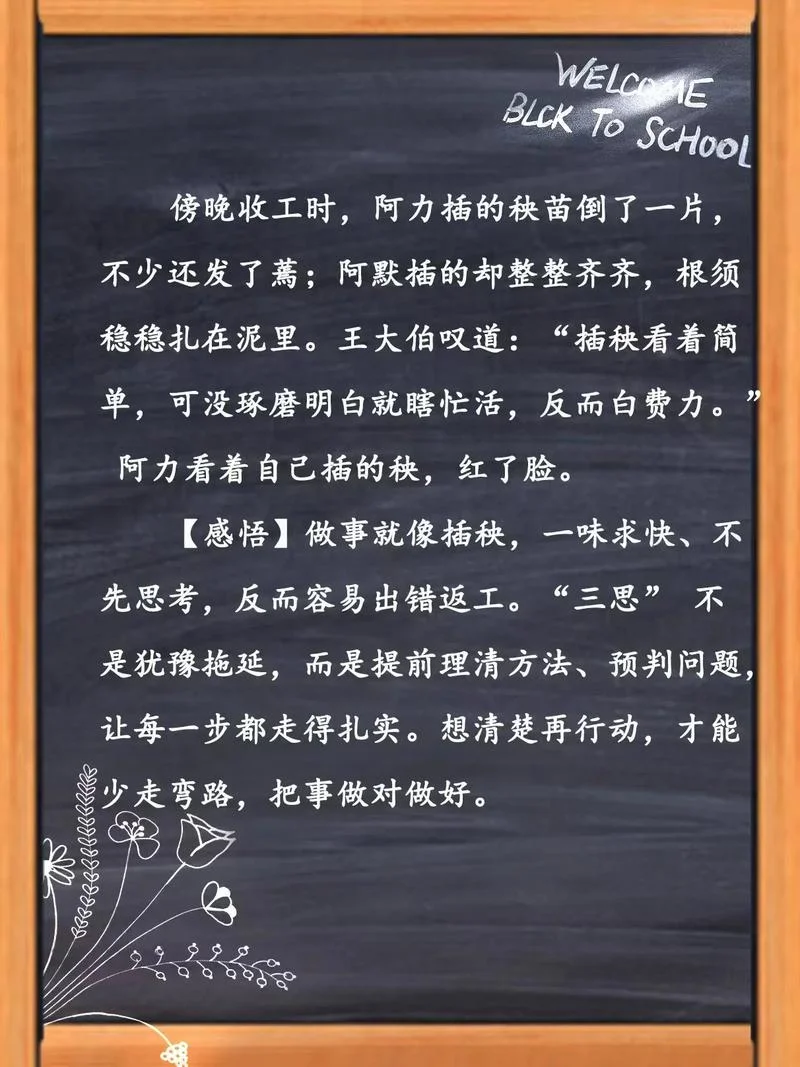 WELCOME
BLCK TO SCHOOL
傍晚收工时，阿力插的秧苗倒了一片，
不少还发了蔫；阿默插的却整整齐齐，根须
稳稳扎在泥里。王大伯叹道：“插秧看着简
单，可没琢磨明白就瞎忙活，反而白费力。”
阿力看着自己插的秧，红了脸。
【感悟】做事就像插秧，一味求快、不
先思考，反而容易出错返工。“三思” 不
是犹豫拖延，而是提前理清方法、预判问题，
让每一步都走得扎实。想清楚再行动，才能
少走弯路，把事做对做好。